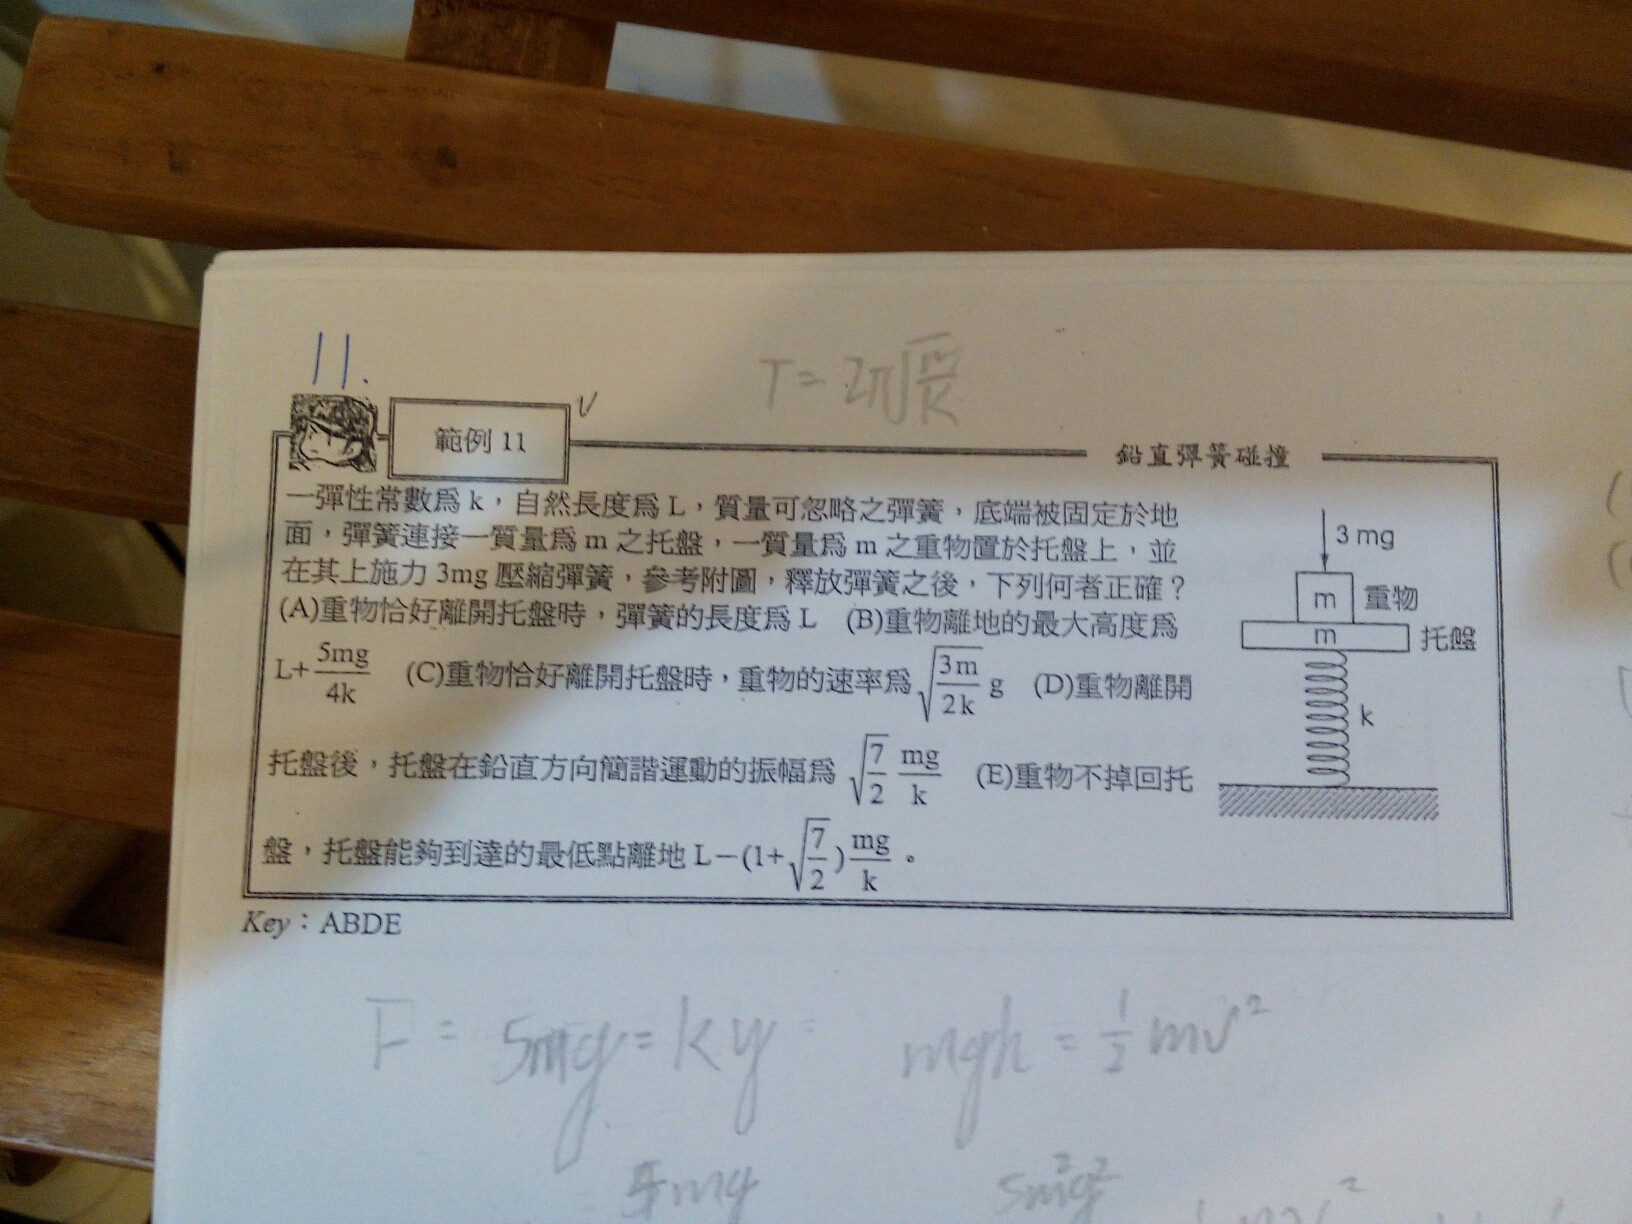 11.
T = 2π√m/K
範例 11
鉛直彈簧碰撞
一彈性常數為 k，自然長度為 L，質量可忽略之彈簧，底端被固定於地
面，彈簧連接一質量為 m 之托盤，一質量為 m 之重物置於托盤上，並
在其上施力 3mg 壓縮彈簧，參考附圖，釋放彈簧之後，下列何者正確？
(A)重物恰好離開托盤時，彈簧的長度為 L (B)重物離地的最大高度為
L+5mg/4k (C)重物恰好離開托盤時，重物的速率為√3m/2k g (D)重物離開
托盤後，托盤在鉛直方向簡諧運動的振幅為 √7/2 mg/k (E)重物不掉回托
盤，托盤能夠到達的最低點離地 L－(1+√7/2)mg/k。
3 mg
m 重物
m 托盤
k
Key：ABDE
F = 5mg = ky = mgh = 1/2 mv²